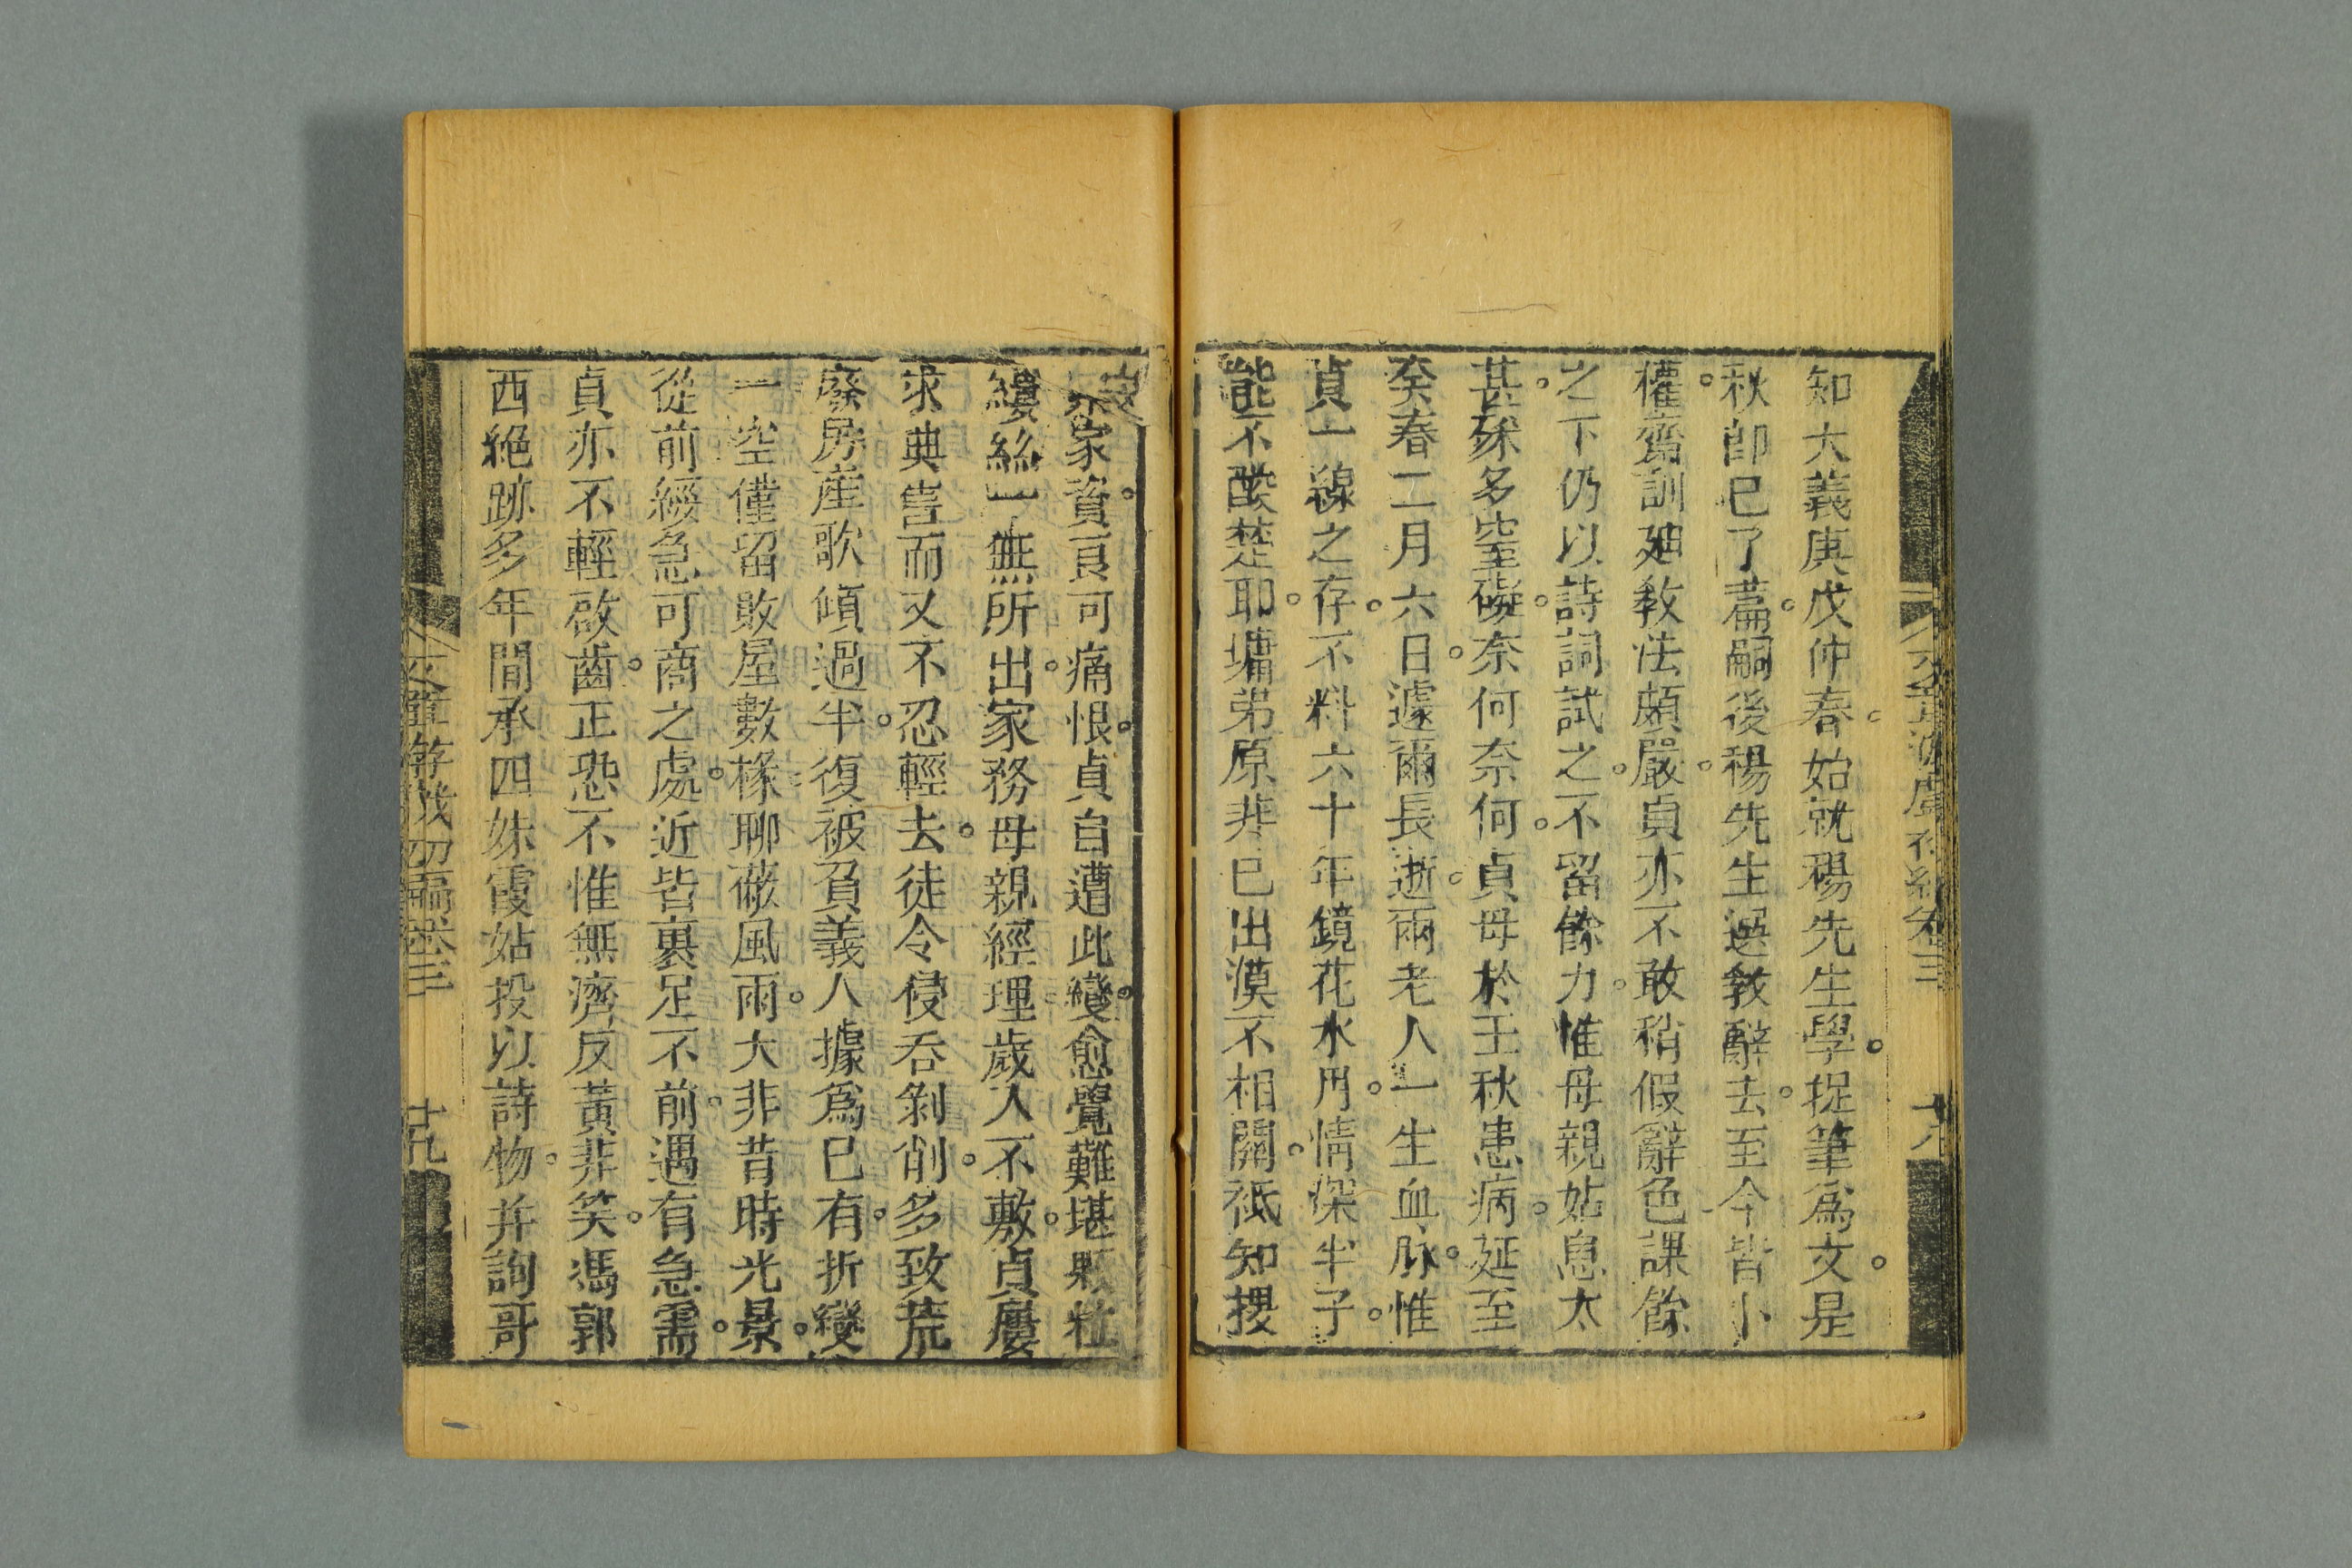 知大義庚戌仲春。始就楊先生學。捉筆爲文。是
秋卽已了篇。嗣後楊先生選敎辭去。至今皆小
權。齋訓廸敎法頗嚴。貞亦不敢稍假辭色課餘
之下仍以詩詞試之。不留餘力。惟母親姑息太
甚。殊多窒礙。奈何奈何。貞母於壬秋患病。延至
癸春二月六日。遽爾長逝。兩老人一生血脉。惟
貞一線之存。不料六十年鏡花水月。情深半子。
能不酸楚耶。墉弟原非已出漠不相關。祇知攫
家資。良可痛恨。貞自遭此變。愈覺難堪顆粒
縷絲一無所出。家務母親經理歲入不敷。貞屢
求典售而又不忍輕去。徒令侵呑剝削。多致荒
廢房産歌傾過半。復被負義人據爲已有。折變
一空僅留敗屋數椽聊蔽風雨。大非昔時光景。
從前緩急可商之處。近皆裹足不前。遇有急需。
貞亦不輕啟齒。正恐不惟無濟反黃非笑。馮郭
西絶跡多年間承四妹霞姑投以詩物。并詢哥
十八
卷三
十九